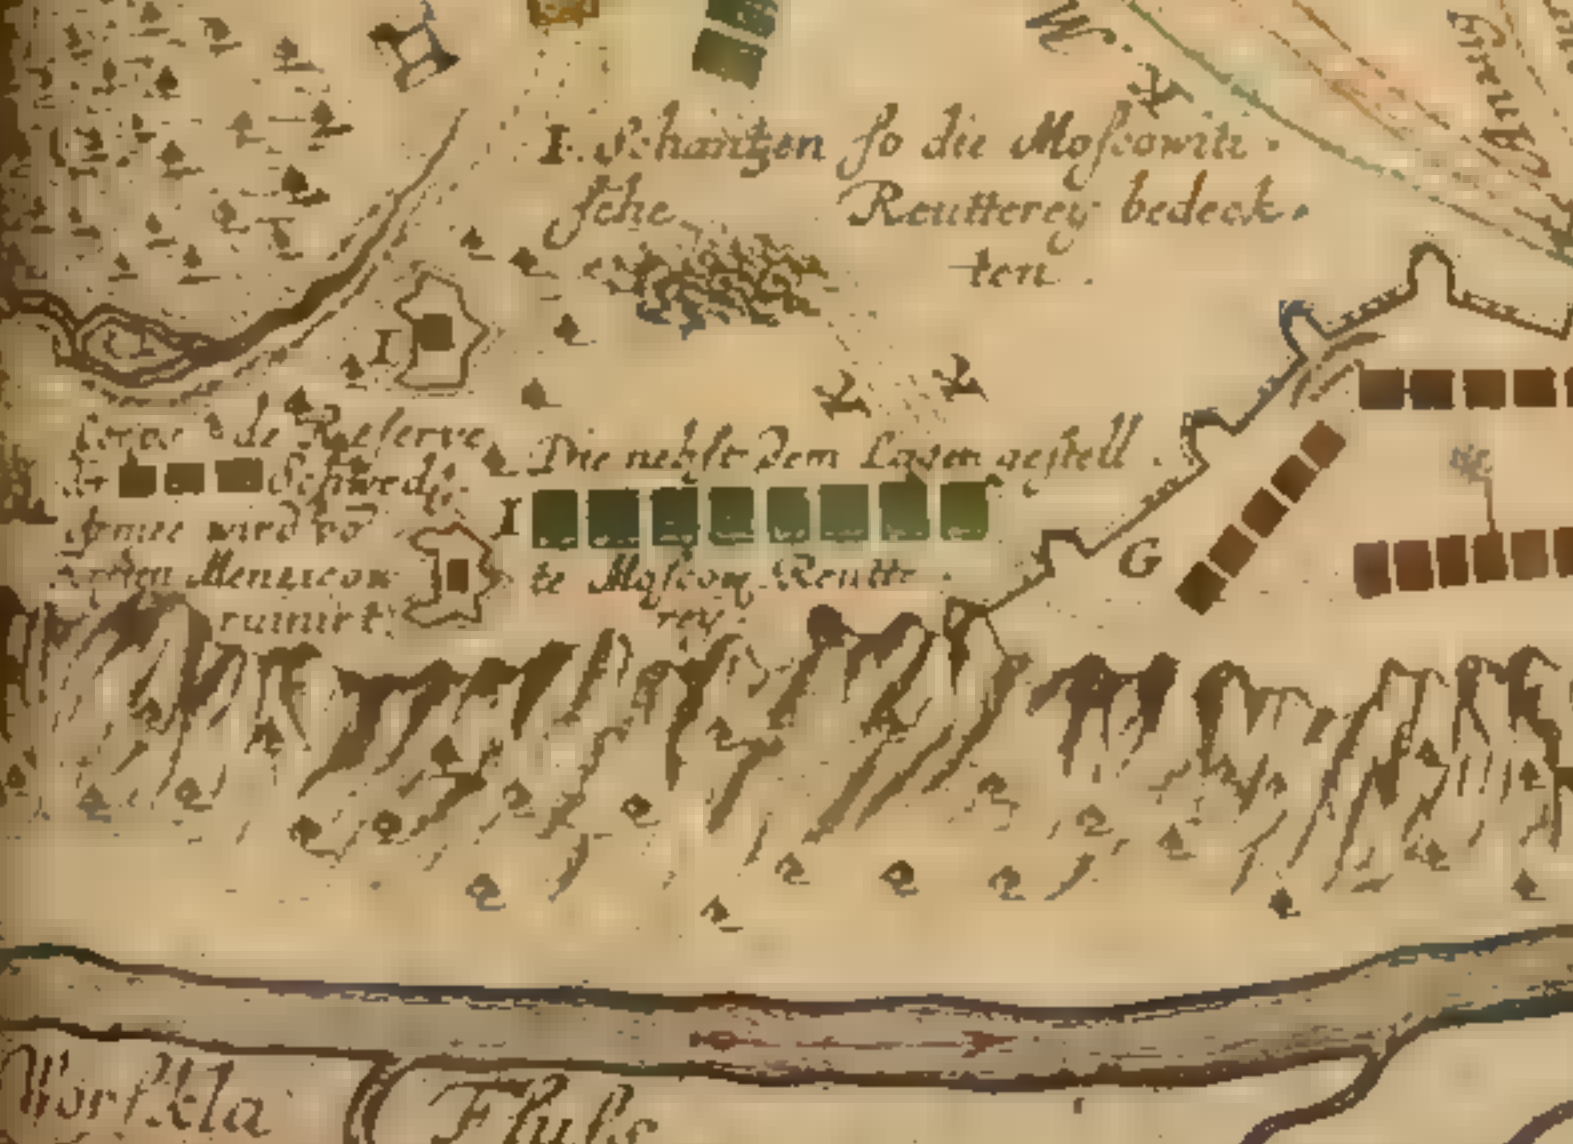 I. Schantzen so die Moscowiti
sche Reutterey bedeck
ten.
I
Corps de Reserve
der Schwed.
Armee wird vo
Menzicow
ruinirt
Die nebst dem Lager gestell
I
te Moscow Reutte
rey
G
Worskla Fluss